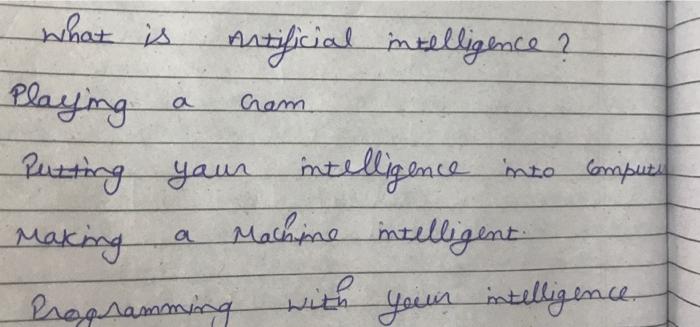 What is Artificial intelligence?
Playing a Gam
Putting your intelligence into Compute
Making a Machine intelligent.
Programming with your intelligence.